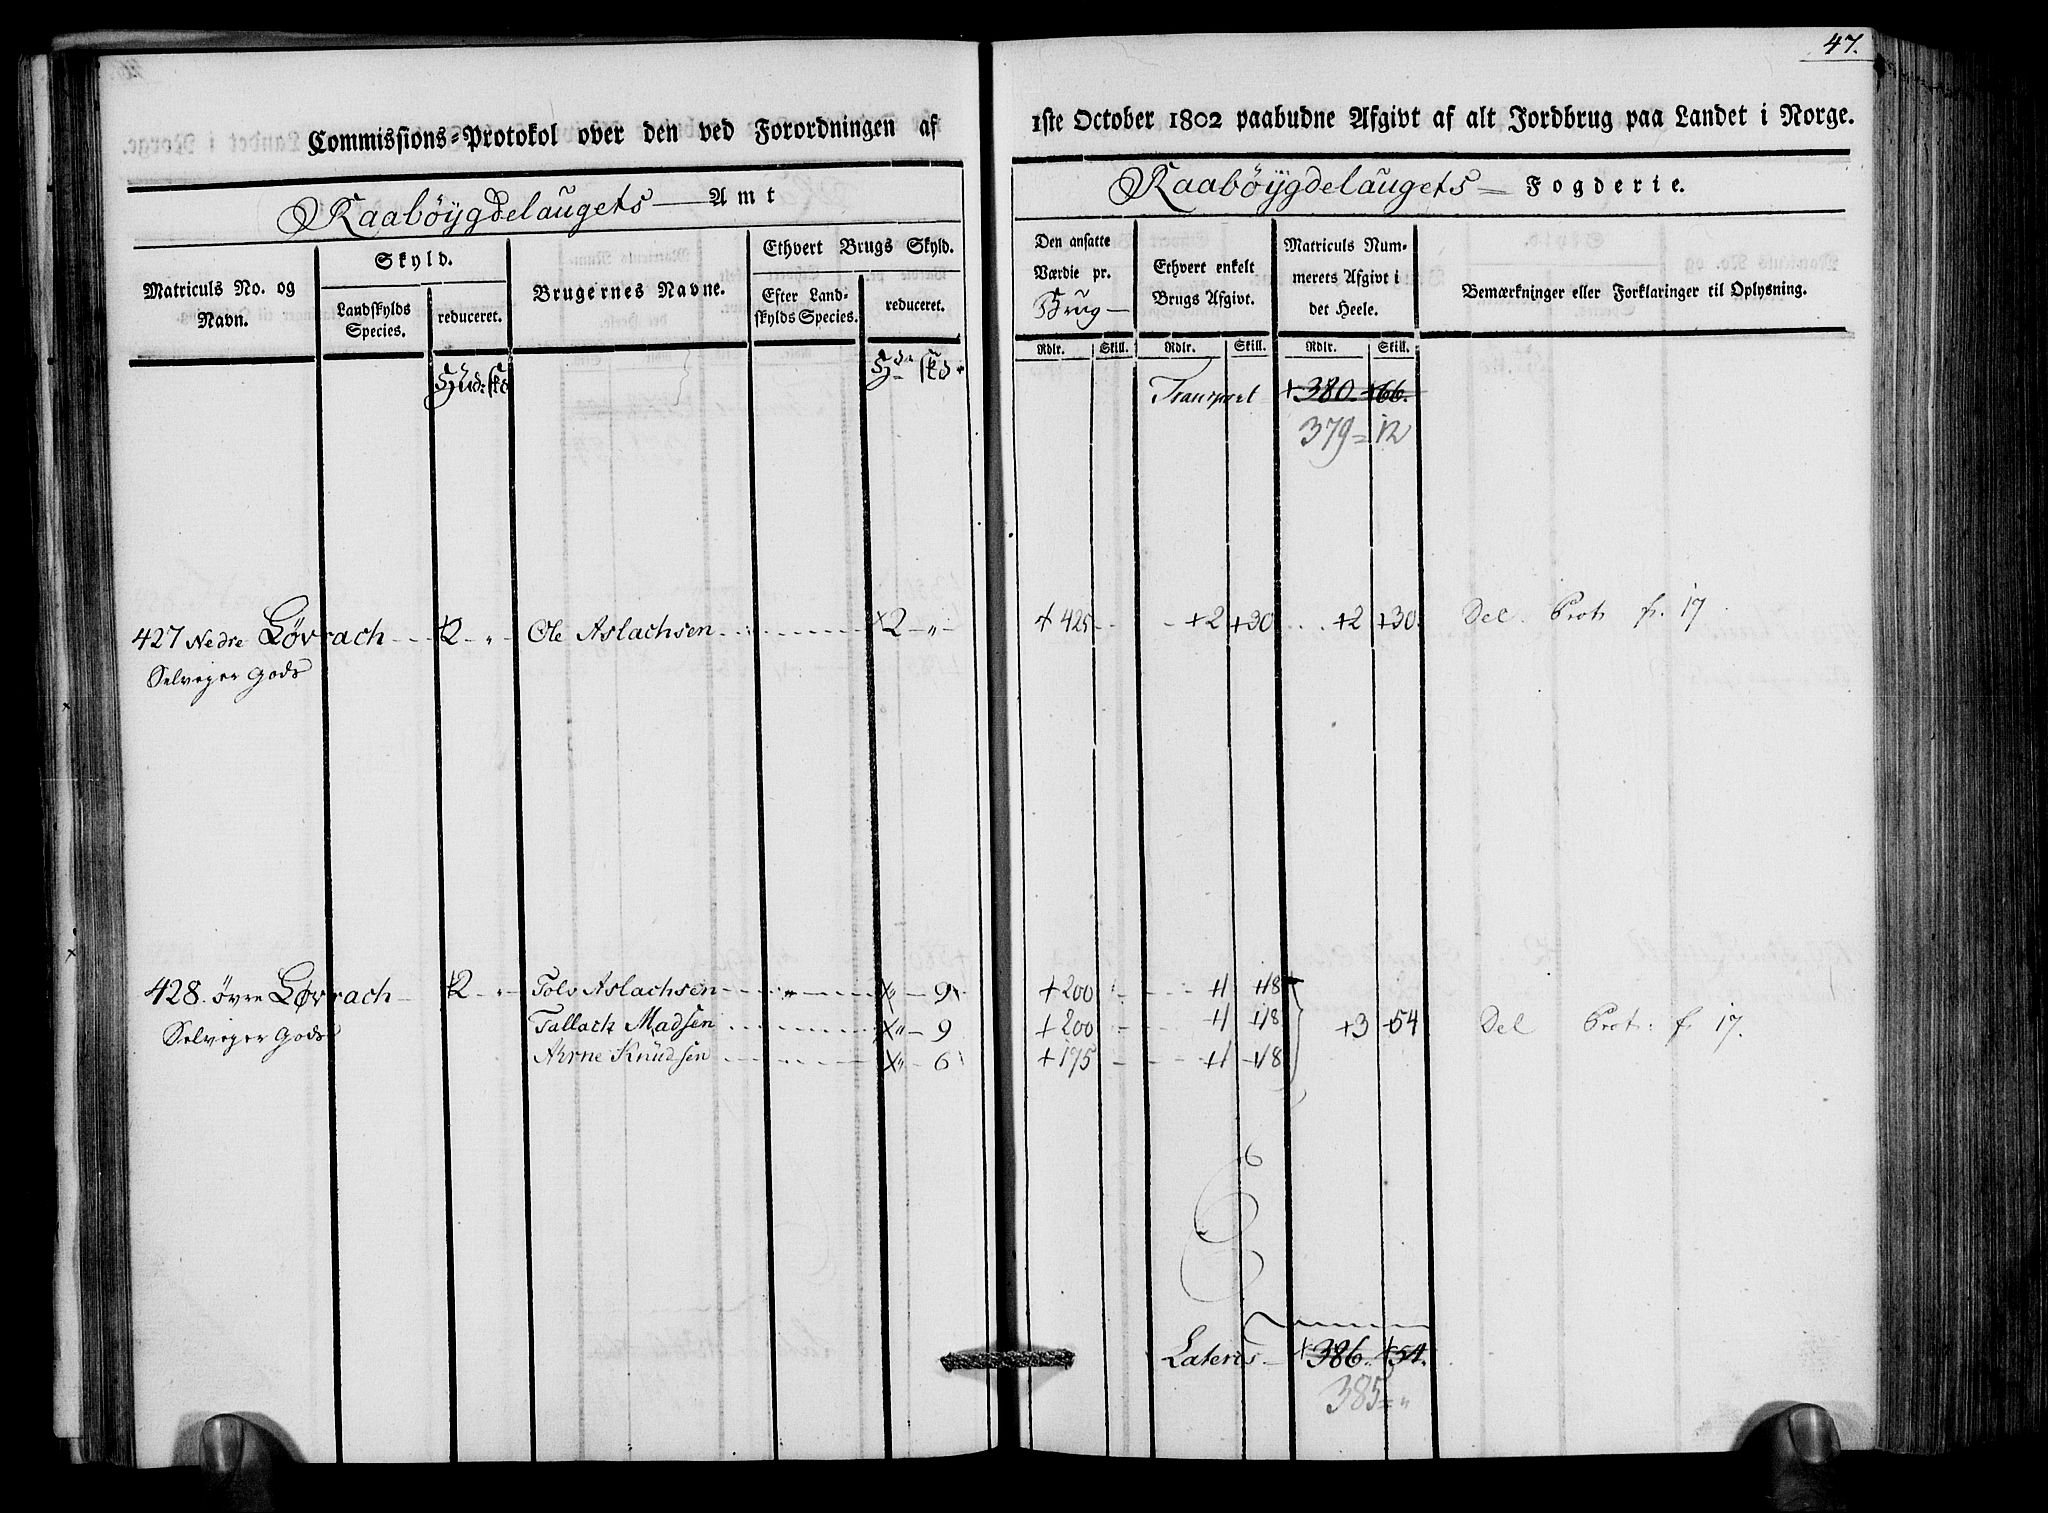 47.
Commissions-Protokol over den ved Forordningen af 1ste October 1802 paabudne Afgivt af alt Jordbrug paa Landet i Norge.
Raabøygdelaugets Amt
Raabøygdelaugets Fogderie.
Matriculs No. og Navn.
Skyld.
Landskylds Species.
reduceret.
Brugernes Navne.
Ethvert Brugs Skyld.
Efter Landskylds Species.
reduceret.
Den ansatte Værdie pr. Brug
Ethvert enkelt Brugs Afgivt.
Matriculs Nummerets Afgivt i det Heele.
Bemærkninger eller Forklaringer til Oplysning.
Rdlr. Skill. Rdlr. Skill. Rdlr. Skill.
Hud: skd
Hd skd.
Transport +380. +66.
379 = 12
427 Nedre Løvrach +2 „ Ole Aslachsen +2 „ +425 +2 +30 +2 +30. Del. Prot. fr. 17.
Selveger Gods
428. øvre Løvrach +2 „ Tolv Aslachsen „ +„ 9 +200 +1 +18
Tallack Madsen +„ 9 +200 +1 +18 +3 +54 Del Prot: f. 17.
Selveger Gods
Aerne Knudsen +„ 6 +175 +1 +18
Lateris +386. +54.
385 = „